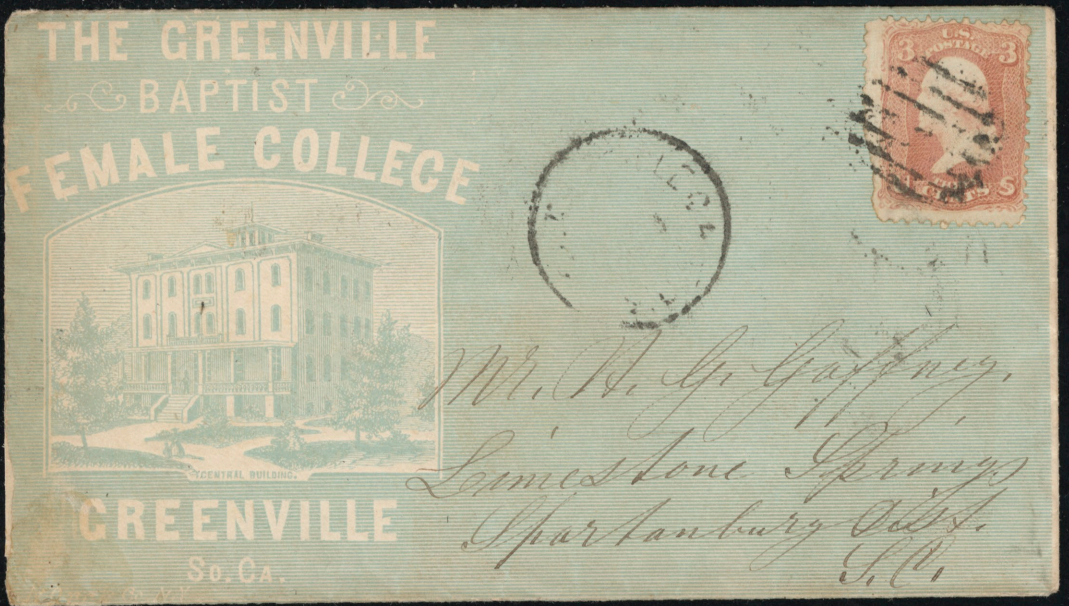 THE GREENVILLE
BAPTIST
FEMALE COLLEGE
CENTRAL BUILDING.
GREENVILLE
So. Ca.
3 U.S. POSTAGE 3
CENTS
Mr. H. G. Gaffney,
Limestone Springs
Spartanburg Dist.
S.C.